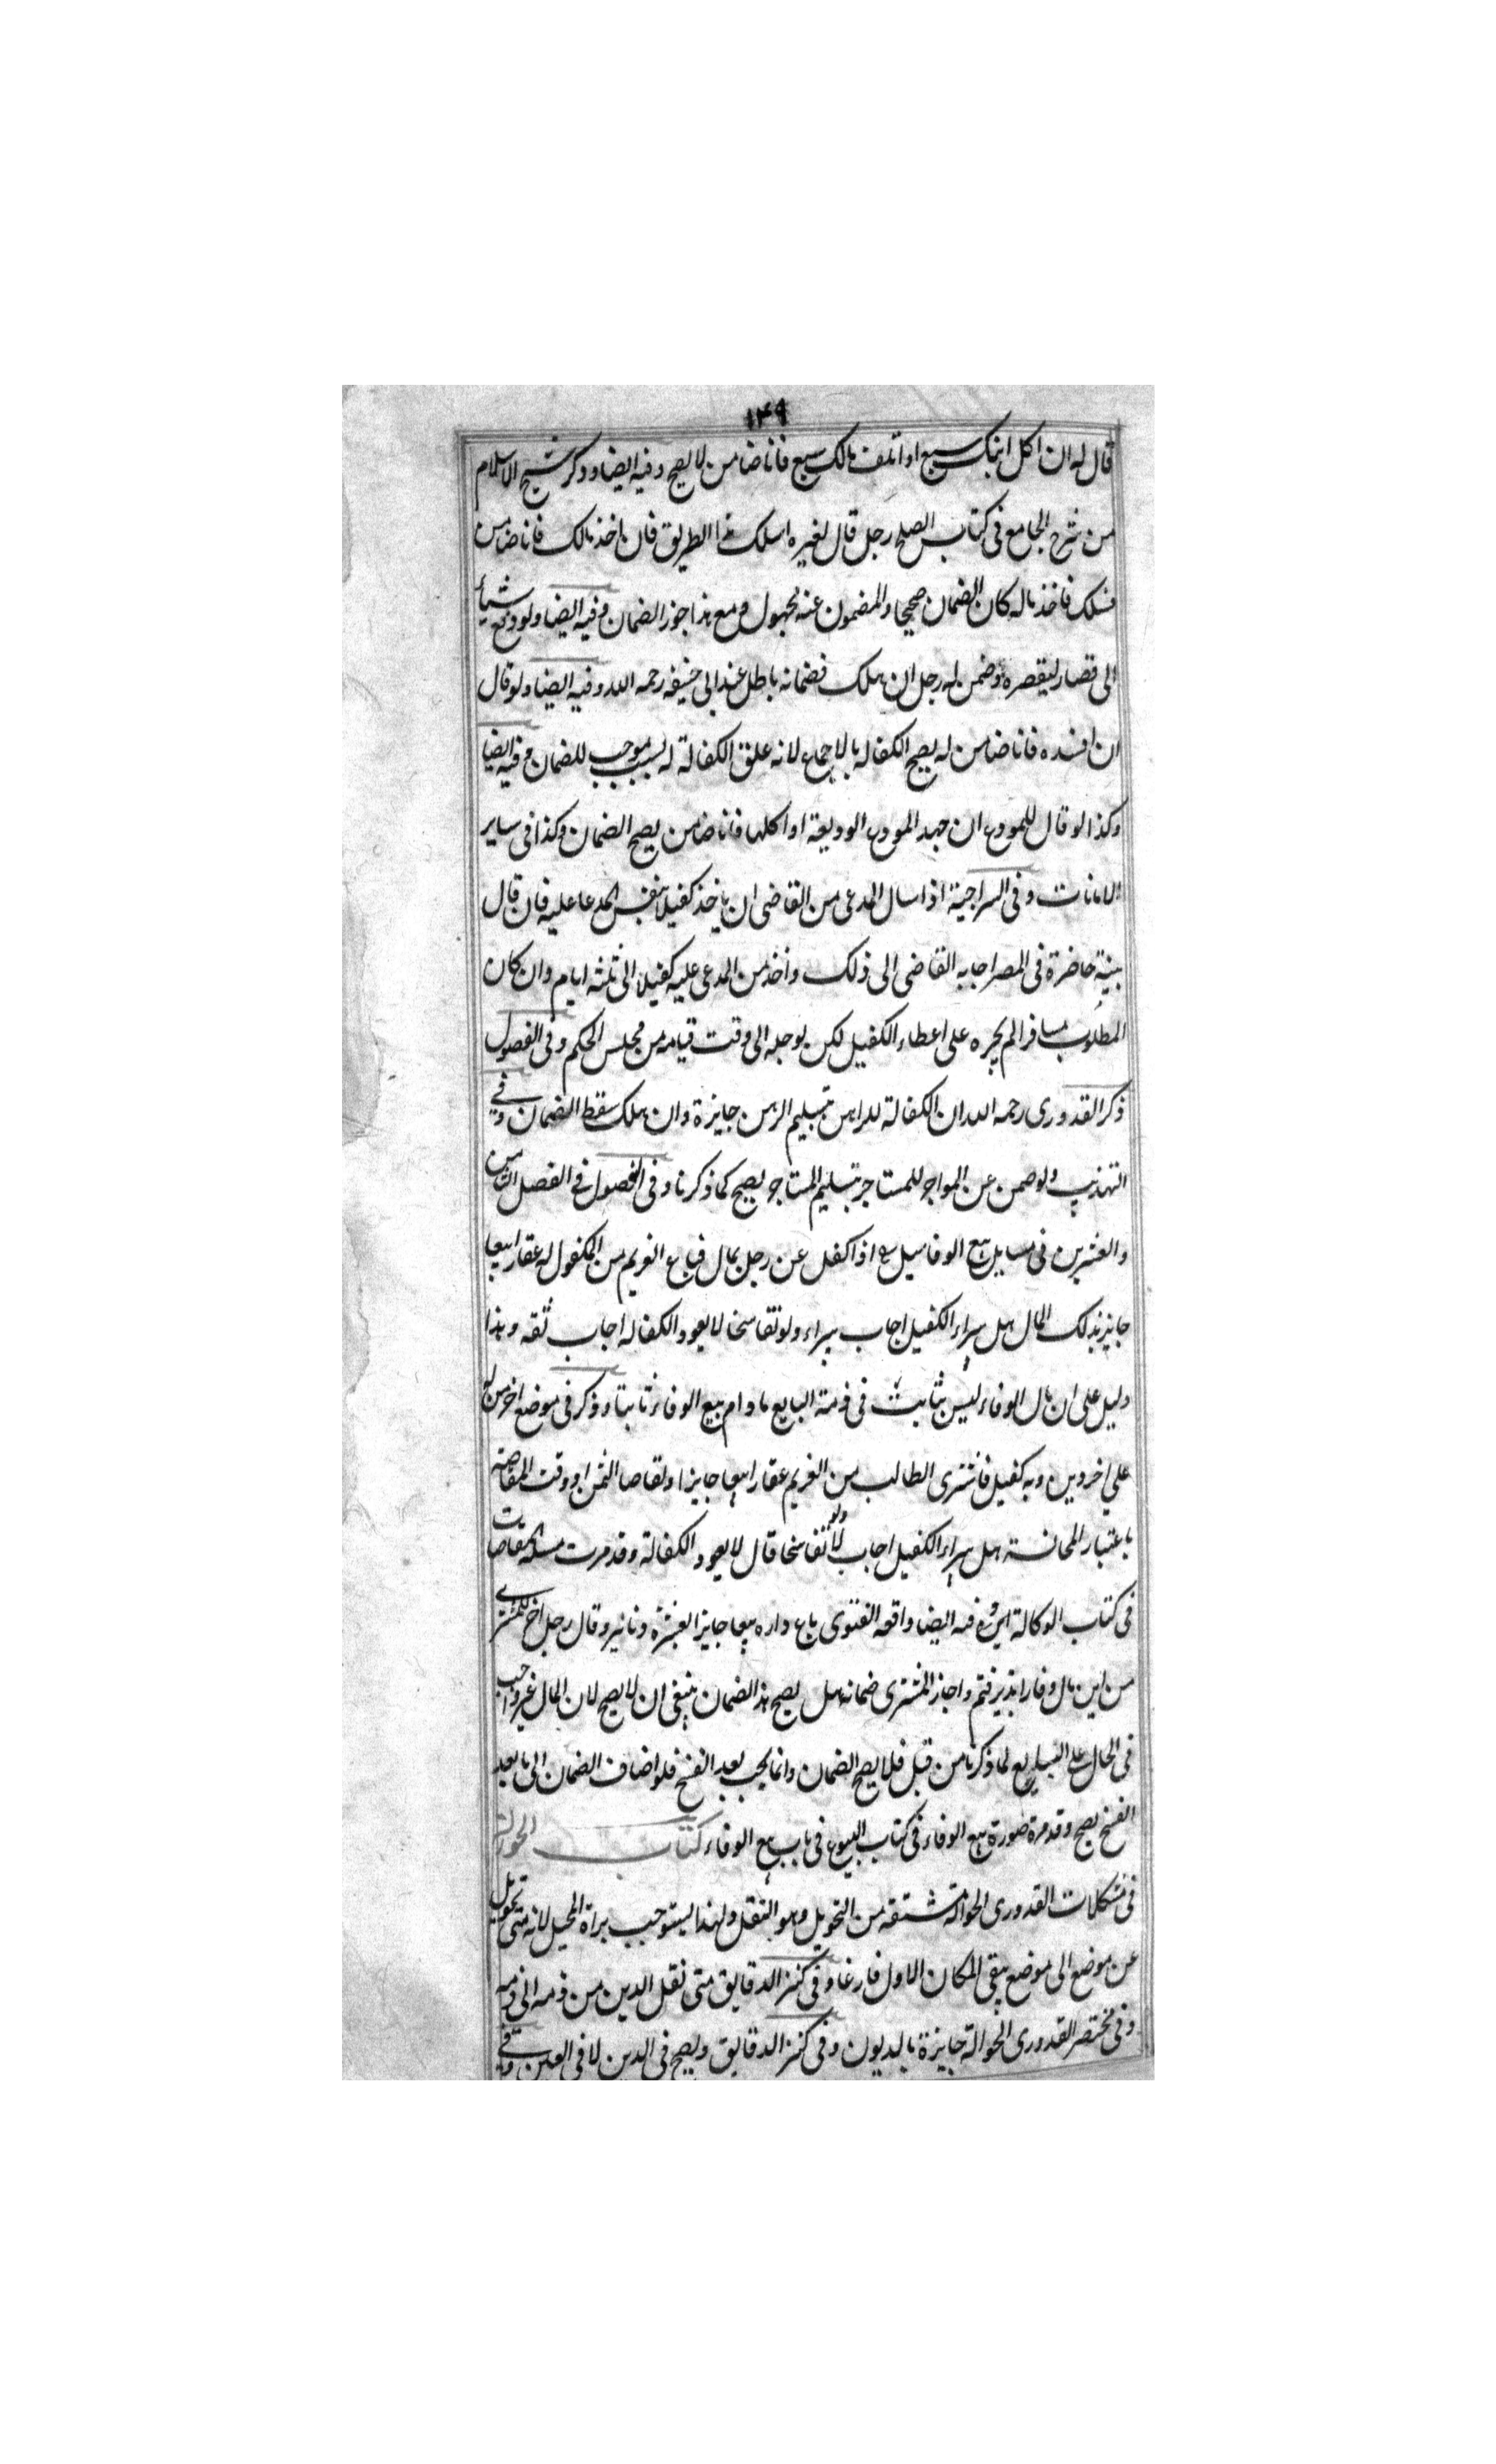 ١٤٩
قال له ان اكل ابنك سبع او اتلف مالك سبع فانا ضامن لا يصح وفيه ايضا وذكر شيخ الاسلام
من شرح الجامع فى كتاب الصلح رجل قال لغيره اسلك هذا الطريق فان اخذ مالك فانا ضامن
فسلك فاخذ ماله كان الضمان صحيحا والمضمون عنه مجهول ومع هذا جوز الضمان وفيه ايضا ولو دفع شيأ
الى قصار ليقصره وضمن له رجل ان هلك فضمانه باطل عند ابى حنيفه رحمه الله وفيه ايضا ولو قال
ان افسده فانا ضامن له يصح الكفاله بالاجماع لانه علق الكفالة له بسبب موجب للضمان وفيه ايضا
وكذا لو قال للمودع ان جحد المودع الوديعة او اكلها فانا ضامن يصح الضمان وكذا فى ساير
الامانات وفى السراجية اذا سال المدعى من القاضى ان ياخذ كفيلا بنفس المدعا عليه فان قال
بينة حاضرة فى المصر اجابه القاضى الى ذلك واخذ من المدعى عليه كفيلا الى ثلثه ايام وان كان
المطلوب مسافرا لم يجبره على اعطاء الكفيل لكن يوجله الى وقت قيامه من مجلس الحكم وفى الفصول
ذكر القدورى رحمه الله ان الكفالة للراهن بتسليم الرهن جايزة وان هلك سقط الضمان وفى
التهذيب ولو ضمن عن المواجر للمستاجر بتسليم المستاجر يصح كما ذكرنا وفى الفصول فى الفصل الثامن
والعشرين فى مسايل بيع الوفا سيل اذا كفل عن رجل بمال فباع الغريم من المكفول له عقارا بيعا
جايز بذلك المال هل يبراء الكفيل اجاب يبراء ولو تفاسخا لا يعود الكفاله اجاب ثقه وهذا
دليل على ان مال الوفاء ليس بثابت فى ذمة البايع ما دام بيع الوفاء ثابتا وذكر فى موضع اخر من له
على اخر دين وبه كفيل فاشترى الطالب من الغريم عقارا بيعا جايزا وتقاصا الثمن او وقت المقاصة
باعتبار المجانسة هل يبراء الكفيل اجاب لا ولو تفاسخا قال لا يعود الكفالة وقد مرت مسئلة المقاصات
فى كتاب الوكالة وفيه ايضا واقعه الفتوى باع داره بيعا جايزا بعشرة دنانير وقال رجل اخر للمشترى
من اين مال وفا را پذيرفتم واجاز المشترى ضمانه هل يصح هذا الضمان ينبغى ان لا يصح لان المال غير واجب
فى الحال على البايع لما ذكرنا من قبل فلا يصح الضمان وانما يجب بعد الفسخ فلو اضاف الضمان الى ما بعد
الفسخ يصح وقد مرة صورة بيع الوفاء فى كتاب البيوع فى باب بيع الوفاء كتاب الحوالة
فى مشكلات القدورى الحوالة مشتقه من التحويل وهو النقل ولهذا يستوجب براة المحيل لانه متى تحويل
عن موضع الى موضع يبقى المكان الاول فارغا وفى كنز الدقايق متى نقل الدين من ذمه الى ذمه
وفى مختصر القدورى الحوالة جايزة بالديون وفى كنز الدقايق ويصح فى الدين لا فى العين وفى